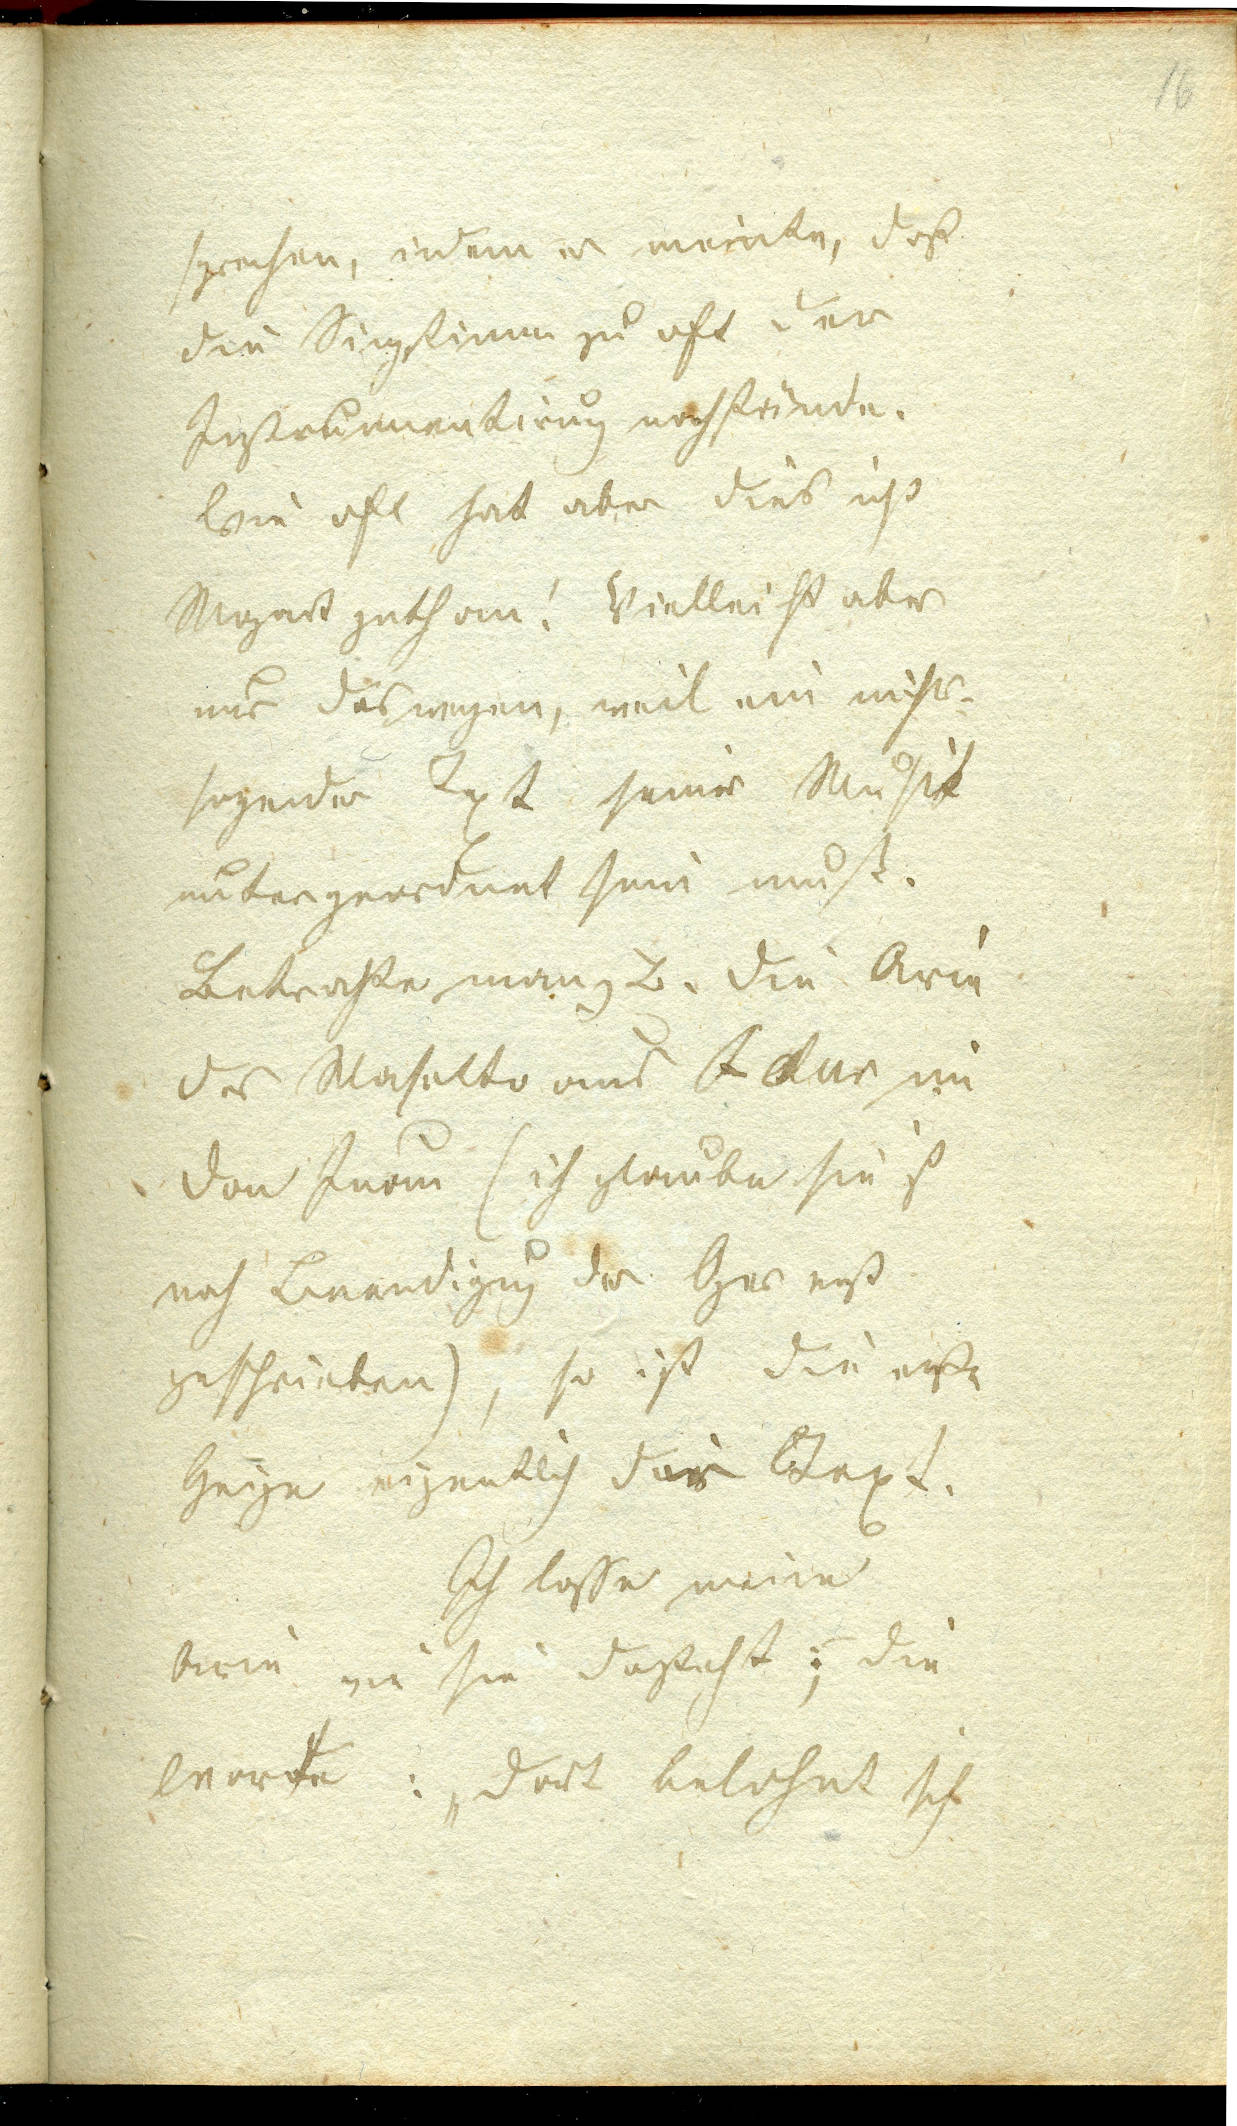 16
sprechen, indem er meinte, daß
die Singstimme zu oft der
Instrumentirung nachstünde.
Wie oft hat aber dies ist
Mozart gethan! Vielleicht aber
nur deswegen, weil ein nichts-
sagender Text seiner Musik
untergeordnet sein muß.
Betrachte man z B. die Arie
des Masetto aus F dur im
Don Juan (ich glaube sie ist
nach Beendigung der Oper erst
geschrieben), so ist die erste
Geige eigentlich der Text.
Ich lasse meine
Arie wie sie dasteht; die
Worte: „Dort belohnt sich